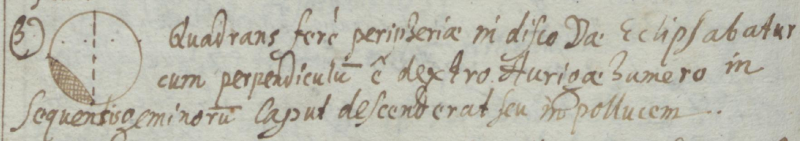 3) Quadrans ferè peripheriæ in disco Dæ Eclipsabatur
cum perpendiculū ē dextro Aurigæ humero in
sequentis geminorū Caput descenderat seu in pollucem..